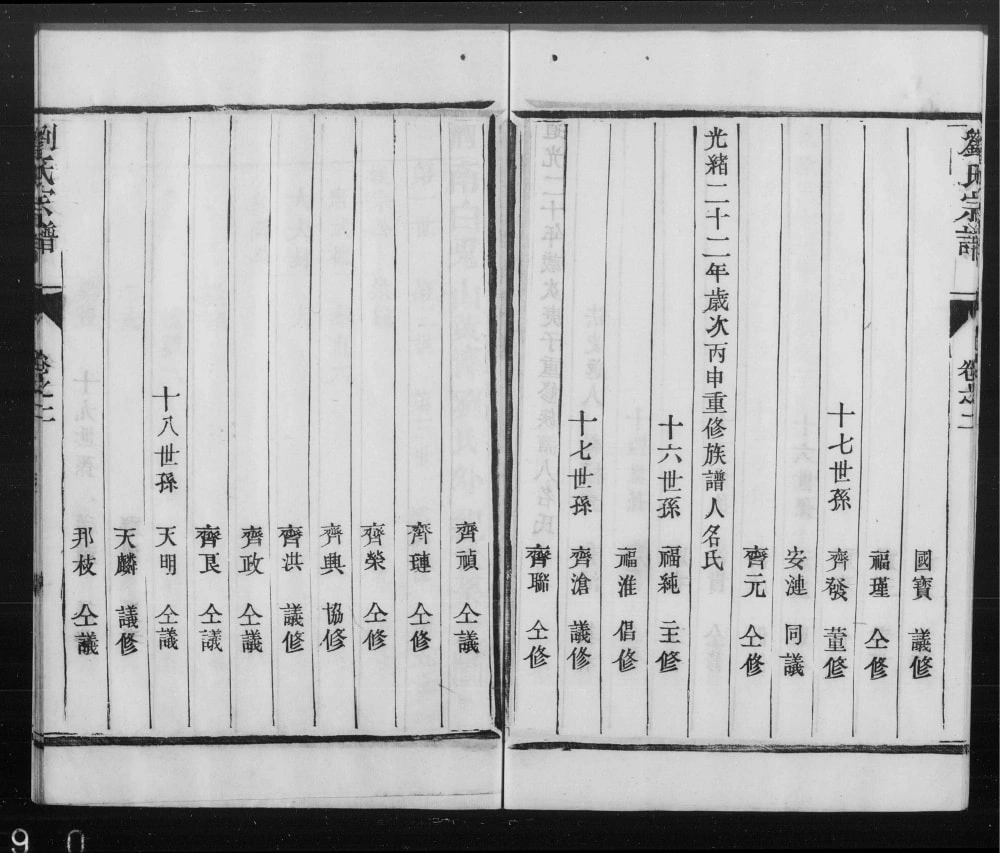 劉氏宗譜 卷之二
國寶 議修
福瑾 仝修
十七世孫 齊發 董修
安漣 同議
齊元 仝修
光緒二十二年歲次丙申重修族譜人名氏
十六世孫 福純 主修
福淮 倡修
十七世孫 齊滄 議修
齊聯 仝修
齊禎 仝議
齊璉 仝修
齊榮 仝修
齊興 協修
齊洪 議修
齊政 仝議
齊艮 仝議
十八世孫 天明 仝議
天麟 議修
邦枝 仝議
劉氏宗譜 卷之二
9 0